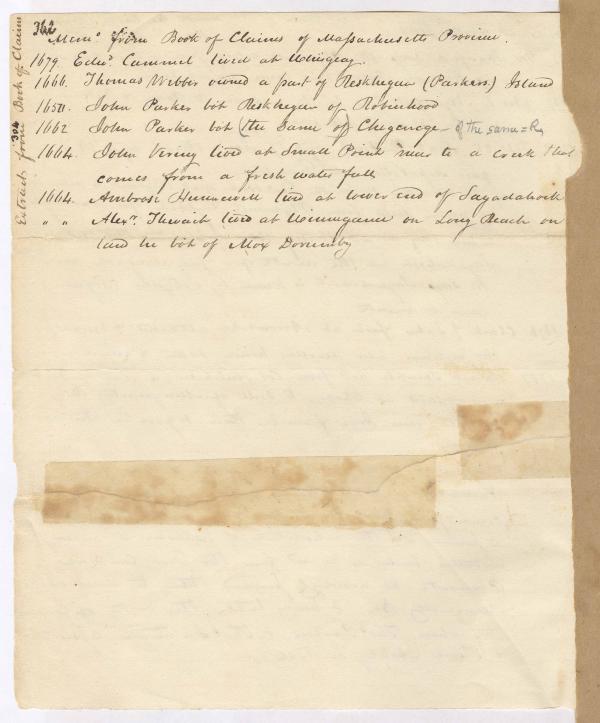 362
Mem° from Book of Claims of Massachusetts Province.
1679. Edwd Cammel lived at Winigeag.
1666. Thomas Webber owned a part of Reskhegan (Parkers) Island
1650. John Parker bôt Reskhegan of Robinhood
1662 John Parker bôt (the same of) Chegenoge - of the same =
1664. John Vering lived at Small Point near to a creek that
comes from a fresh water fall
1664. Ambrose Hunnewell lived at lower end of Sagadahock
" " Alexr. Thwait lived at Winnegance on Long Reach on
land he bôt of Mox Dorumby
Extracts from Book of Claims
304